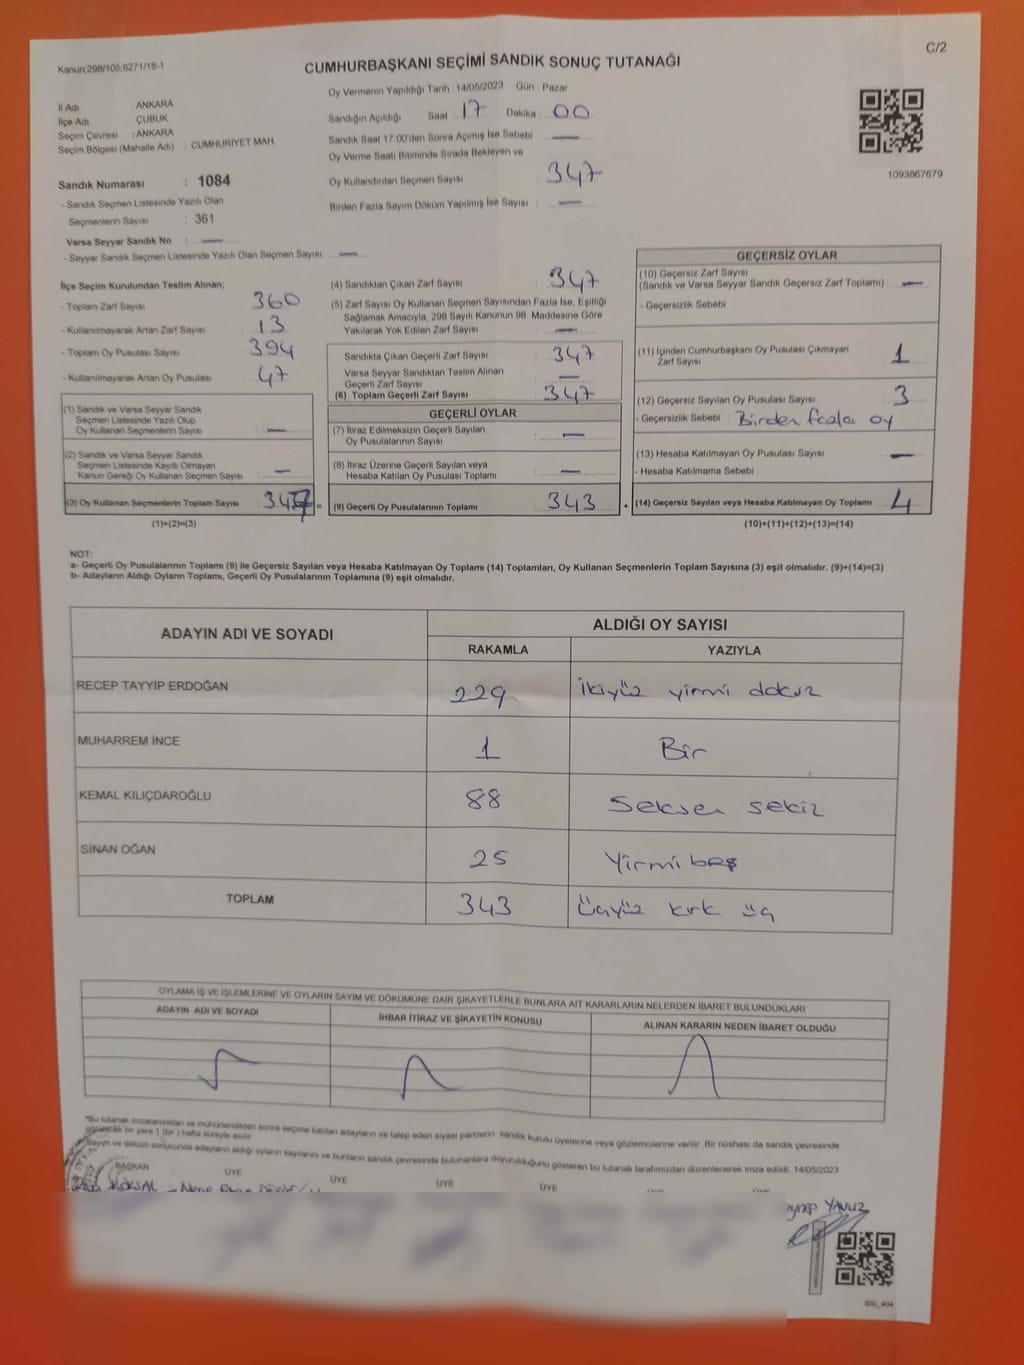 C/2
Kanun:298/105,6271/18-1
CUMHURBAŞKANI SEÇİMİ SANDIK SONUÇ TUTANAĞI
Oy Vermenin Yapıldığı Tarih :14/05/2023 Gün : Pazar
İl Adı : ANKARA
İlçe Adı : ÇUBUK
Seçim Çevresi : ANKARA
Seçim Bölgesi (Mahalle Adı) : CUMHURİYET MAH.
Sandığın Açıldığı Saat : 17 Dakika : 00
Sandık Saat 17:00'den Sonra Açımış İse Sebebi : —
Oy Verme Saati Bitiminde Sırada Bekleyen ve
Oy Kullandırılan Seçmen Sayısı : 347
Birden Fazla Sayım Döküm Yapılmış İse Sayısı : —
1093867679
Sandık Numarası : 1084
- Sandık Seçmen Listesinde Yazılı Olan
Seçmenlerin Sayısı : 361
Varsa Seyyar Sandık No : —
- Seyyar Sandık Seçmen Listesinde Yazılı Olan Seçmen Sayısı: —
İlçe Seçim Kurulundan Teslim Alınan;
- Toplam Zarf Sayısı : 360
- Kullanılmayarak Artan Zarf Sayısı : 13
- Toplam Oy Pusulası Sayısı : 394
- Kullanılmayarak Artan Oy Pusulası : 47
(1) Sandık ve Varsa Seyyar Sandık
Seçmen Listesinde Yazılı Olup
Oy Kullanan Seçmenlerin Sayısı : —
(2) Sandık ve Varsa Seyyar Sandık
Seçmen Listesinde Kayıtlı Olmayan
Kanun Gereği Oy Kullanan Seçmen Sayısı : —
(3) Oy Kullanan Seçmenlerin Toplam Sayısı : 347 =
(1)+(2)=(3)
(4) Sandıktan Çıkan Zarf Sayısı : 347
(5) Zarf Sayısı Oy Kullanan Seçmen Sayısından Fazla İse, Eşitliği
Sağlamak Amacıyla, 298 Sayılı Kanunun 98. Maddesine Göre
Yakılarak Yok Edilen Zarf Sayısı : —
Sandıkta Çıkan Geçerli Zarf Sayısı : 347
Varsa Seyyar Sandıktan Teslim Alınan
Geçerli Zarf Sayısı : —
(6) Toplam Geçerli Zarf Sayısı : 347
GEÇERLİ OYLAR
(7) İtiraz Edilmeksizin Geçerli Sayılan
Oy Pusulalarının Sayısı : —
(8) İtiraz Üzerine Geçerli Sayılan veya
Hesaba Katılan Oy Pusulası Toplamı : —
(9) Geçerli Oy Pusulalarının Toplamı : 343 +
GEÇERSİZ OYLAR
(10) Geçersiz Zarf Sayısı
(Sandık ve Varsa Seyyar Sandık Geçersiz Zarf Toplamı) : —
- Geçersizlik Sebebi :
(11) İçinden Cumhurbaşkanı Oy Pusulası Çıkmayan
Zarf Sayısı : 1
(12) Geçersiz Sayılan Oy Pusulası Sayısı : 3
- Geçersizlik Sebebi : Birden fazla oy
(13) Hesaba Katılmayan Oy Pusulası Sayısı : —
- Hesaba Katılmama Sebebi :
(14) Geçersiz Sayılan veya Hesaba Katılmayan Oy Toplamı : 4
(10)+(11)+(12)+(13)=(14)
NOT:
a- Geçerli Oy Pusulalarının Toplamı (9) ile Geçersiz Sayılan veya Hesaba Katılmayan Oy Toplamı (14) Toplamları, Oy Kullanan Seçmenlerin Toplam Sayısına (3) eşit olmalıdır. (9)+(14)=(3)
b- Adayların Aldığı Oyların Toplamı, Geçerli Oy Pusulalarının Toplamına (9) eşit olmalıdır.
ADAYIN ADI VE SOYADI ALDIĞI OY SAYISI
RAKAMLA YAZIYLA
RECEP TAYYİP ERDOĞAN 229 İkiyüz yirmi dokuz
MUHARREM İNCE 1 Bir
KEMAL KILIÇDAROĞLU 88 Seksen sekiz
SİNAN OĞAN 25 Yirmi beş
TOPLAM 343 Üçyüz kırk üç
OYLAMA İŞ VE İŞLEMLERİNE VE OYLARIN SAYIM VE DÖKÜMÜNE DAİR ŞİKAYETLERLE BUNLARA AİT KARARLARIN NELERDEN İBARET BULUNDUKLARI
ADAYIN ADI VE SOYADI İHBAR İTİRAZ VE ŞİKAYETİN KONUSU ALINAN KARARIN NEDEN İBARET OLDUĞU
*Bu tutanak imzalandıktan ve mühürlendikten sonra seçime katılan adayların ve talep eden siyasi partilerin sandık kurulu üyelerine veya gözlemcilerine verilir. Bir nüshası da sandık çevresinde
görülecek bir yere 1 (bir) hafta süreyle asılır.
Sayım ve döküm sonucunda adayların aldığı oyların sayılarını ve bunların sandık çevresinde bulunanlara duyurulduğunu gösteren bu tutanak tarafımızdan düzenlenerek imza edildi. 14/05/2023
BAŞKAN ÜYE ÜYE ÜYE ÜYE
KÖKSAL
YAVUZ